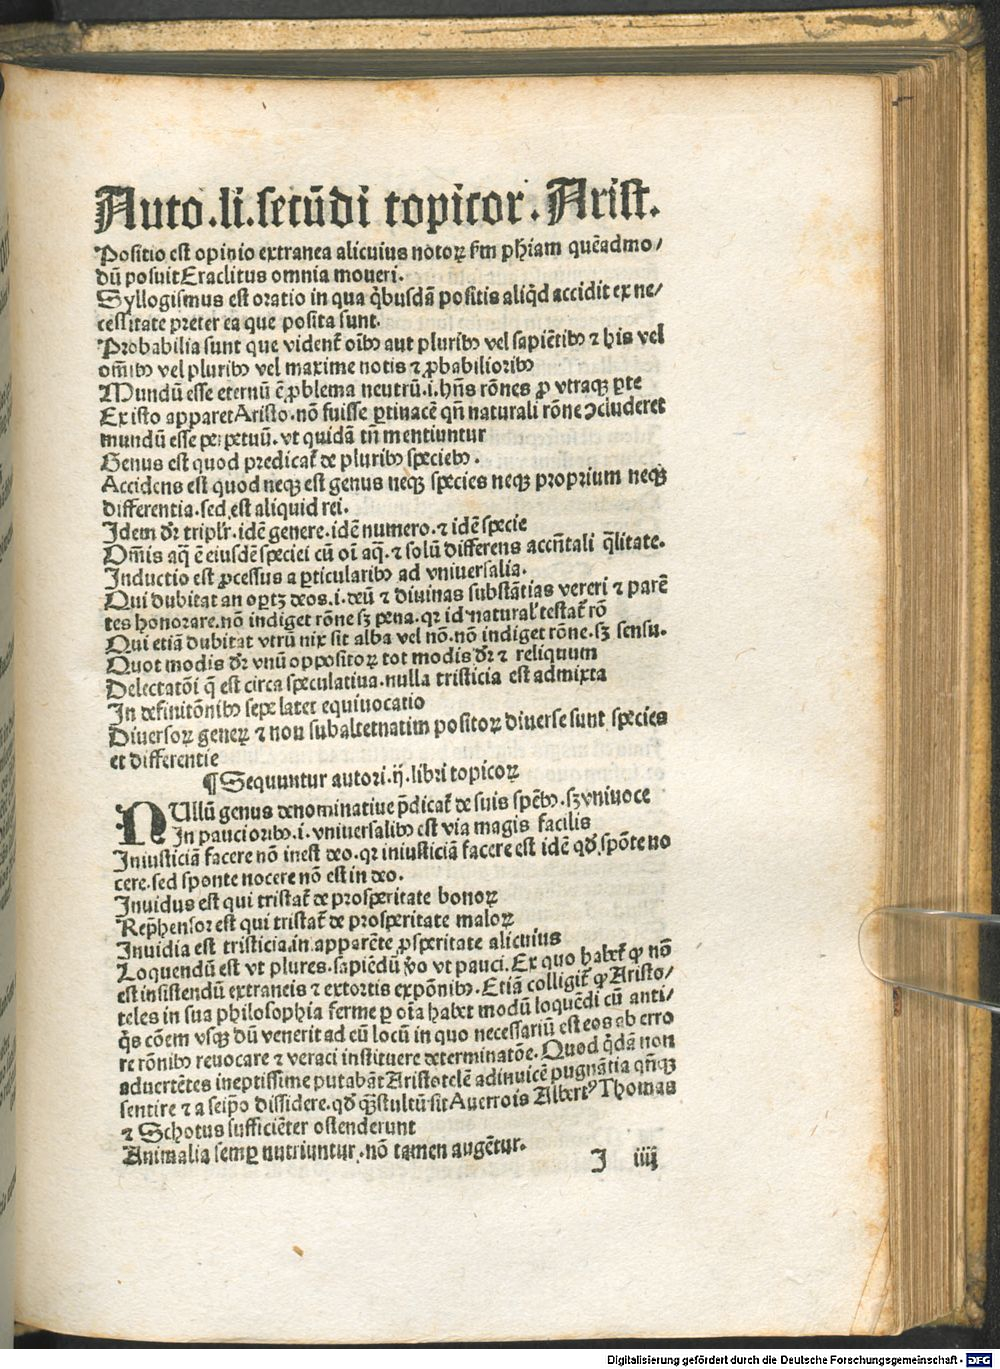 Auto.li.secūdi topicor.Arist.
Positio est opinio extranea alicuius notoꝝ ẜm phiam quēadmo/
dū posuit Eraclitus omnia moueri.
Syllogismus est oratio in qua qͥbusdā positis aliqͥd accidit ex ne/
cessitate preter ea que posita sunt.
Probabilia sunt que vident̄ oībꝰ aut pluribꝰ vel sapiētibꝰ ⁊ his vel
om̄ibꝰ vel pluribꝰ vel maxime notis ⁊ ꝓbabilioribꝰ
Mundū esse eternū ē ꝓblema neutrū.i.hn̄s rōnes ꝓ vtraqꝫ ꝑte
Ex isto apparet Aristo.nō fuisse ꝑtinacē qn̄ naturali rōne ꝯcluderet
mundū esse perpetuū.vt quidā tn̄ mentiuntur
Genus est quod predicat̄ de pluribꝰ speciebꝰ.
Accidens est quod neqꝫ est genus neqꝫ species neqꝫ proprium neqꝫ
differentia.sed est aliquid rei.
Idem dr̄ triplr̄.idē genere.idē numero.⁊ idē specie
Om̄is aq̄ ē eiusdē speciei cū oī aq̄.⁊ solū differens accn̄tali q̄litate.
Inductio est ꝓcessus a ꝑticularibꝰ ad vniuersalia.
Qui dubitat an oportꝫ deos.i.deū ⁊ diuinas substātias vereri ⁊ parē
tes honorare.nō indiget rōne sꝫ pena.qꝛ id natural' testat̄ rō
Qui etiā dubitat vtrū nix sit alba vel nō.nō indiget rōne.sꝫ sensu.
Quot modis dr̄ vnū oppositoꝝ tot modis dr̄ ⁊ reliquum
Delectatōi q̄ est circa speculatiua.nulla tristicia est admixta
In definitōnibꝰ sepe latet equiuocatio
Diuersoꝝ generꝝ ⁊ non subalternatim positoꝝ diuerse sunt species
et differentie
¶ Sequuntur autori.ij.libri topicoꝝ
NUllū genus denominatiue p̄dicat̄ de suis spēbꝰ.sꝫ vniuoce
In paucioribꝰ.i.vniuersalibꝰ est via magis facilis
Iniusticiā facere nō inest deo.qꝛ iniusticiā facere est idē qd̄ spōte no
cere.sed sponte nocere nō est in deo.
Inuidus est qui tristat̄ de prosperitate bonoꝝ
Rep̄hensor est qui tristat̄ de prosperitate maloꝝ
Inuidia est tristicia in apparēte ꝓsperitate alicuius
Loquendū est vt plures.sapiēdū ṽo vt pauci.Ex quo habet̄ ꝙ nō
est insistendū extraneis ⁊ extortis expōnibꝰ.Etiā colligit̄ ꝙ Aristo/
teles in sua philosophia ferme ꝑ oīa habet modū loquēdi cū anti/
qͥs cōem vsqꝫ dū venerit ad eū locū in quo necessariū est eos ab erro
re rōnibꝰ reuocare ⁊ veraci instituere determinatōe.Quod qͥdā non
aduertētes ineptissime putabāt Aristotelē adinuicē pugnātia qn̄qꝫ
sentire ⁊ a seip̄o dissidere.qd̄ qͣꝫ stultū sit Auerrois Albertꝰ Thomas
⁊ Schotus sufficiēter ostenderunt
Animalia semꝑ nutriuntur.nō tamen augētur.
I iiij
Digitalisierung gefördert durch die Deutsche Forschungsgemeinschaft - DFG